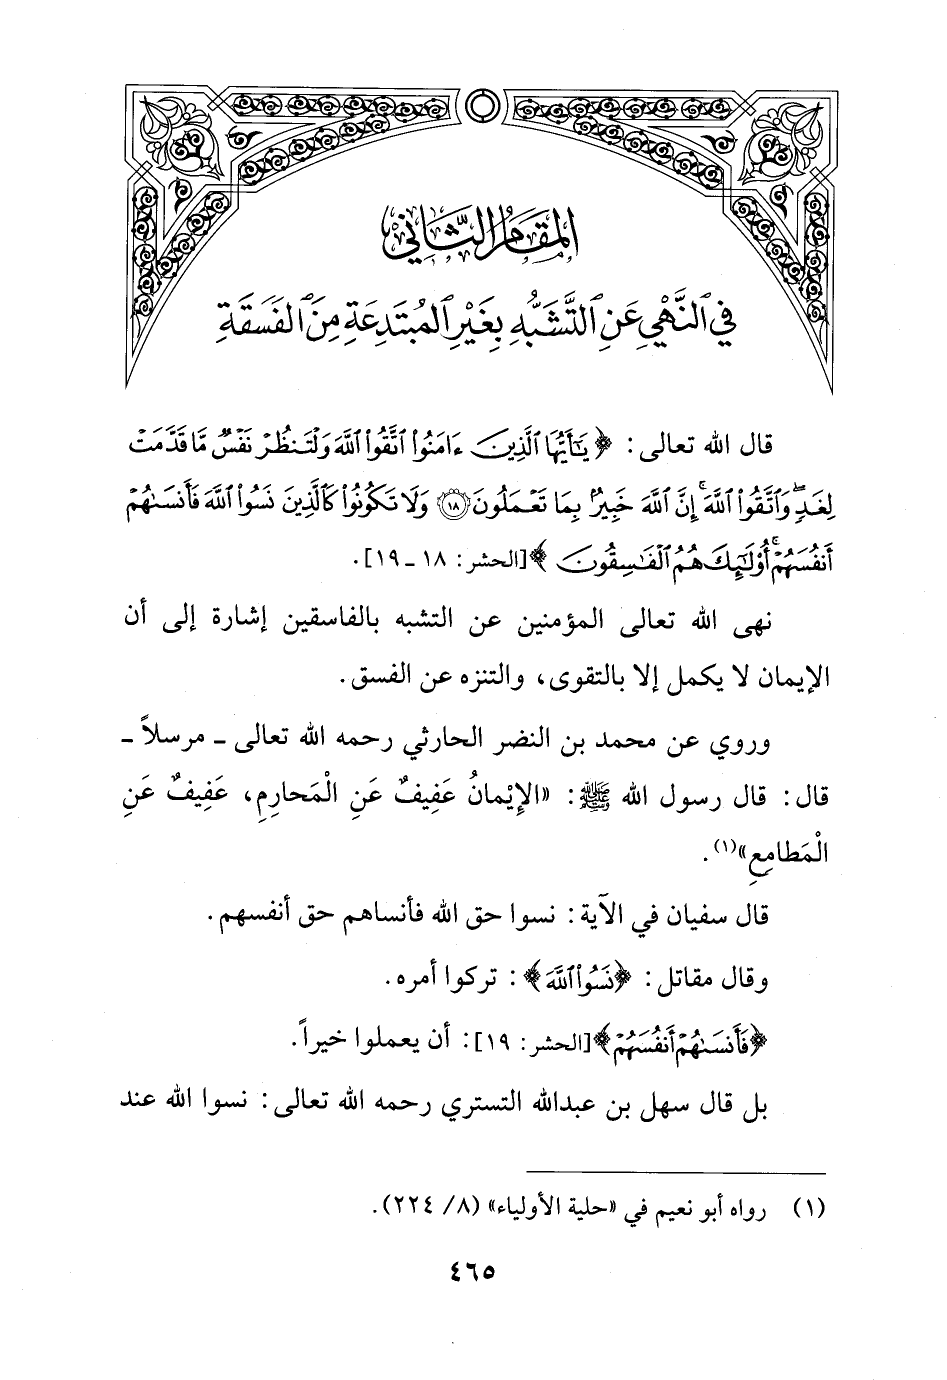 المقام الثاني
في النَّهْيِ عَنِ التَّشَبُّهِ بِغَيْرِ المُبْتَدِعَةِ مِنَ الفَسَقَةِ
قال الله تعالى: ﴿يَٰٓأَيُّهَا ٱلَّذِينَ ءَامَنُوا۟ ٱتَّقُوا۟ ٱللَّهَ وَلْتَنظُرْ نَفْسٌ مَّا قَدَّمَتْ
لِغَدٍ ۖ وَٱتَّقُوا۟ ٱللَّهَ ۚ إِنَّ ٱللَّهَ خَبِيرٌۢ بِمَا تَعْمَلُونَ ﴿١٨﴾ وَلَا تَكُونُوا۟ كَٱلَّذِينَ نَسُوا۟ ٱللَّهَ فَأَنسَىٰهُمْ
أَنفُسَهُمْ ۚ أُو۟لَٰٓئِكَ هُمُ ٱلْفَٰسِقُونَ﴾ [الحشر: ١٨ ـ ١٩].
نهى الله تعالى المؤمنين عن التشبه بالفاسقين إشارة إلى أن
الإيمان لا يكمل إلا بالتقوى، والتنزه عن الفسق.
وروي عن محمد بن النضر الحارثي رحمه الله تعالى ـ مرسلاً ـ
قال: قال رسول الله ﷺ: «الإِيْمانُ عَفِيفٌ عَنِ الْمَحارِمِ، عَفِيفٌ عَنِ
الْمَطامِعِ»(١).
قال سفيان في الآية: نسوا حق الله فأنساهم حق أنفسهم.
وقال مقاتل: ﴿نَسُوا۟ ٱللَّهَ﴾: تركوا أمره.
﴿فَأَنسَىٰهُمْ أَنفُسَهُمْ﴾ [الحشر: ١٩]: أن يعملوا خيراً.
بل قال سهل بن عبدالله التستري رحمه الله تعالى: نسوا الله عند
(١) رواه أبو نعيم في «حلية الأولياء» (٨/ ٢٢٤).
٤٦٥